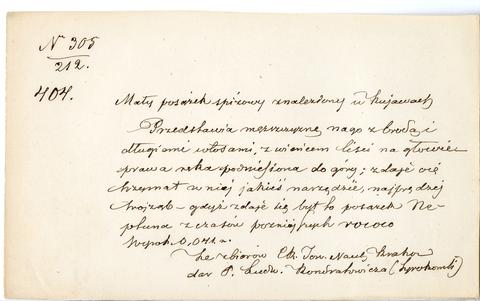 N 305
212.
404.
Mały posążek spiżowy znaleziony w Kujawach
Przedstawia mężczyznę nago z brodą i
długiemi włosami, z wieńcem liści na głowie
prawa ręka podniesiona do góry; zdaje się
trzymał w niej jakieś narzędzie, najprędzej
trojząb – gdyż zdaje się był to posążek Ne
ptuna z czasów poźniejszych rococo
Wysok. 0,071 m.
Ze zbiorów Tow. Nauk. Krako
dar P. Ludw. Kondratowicza (Syrokomli)